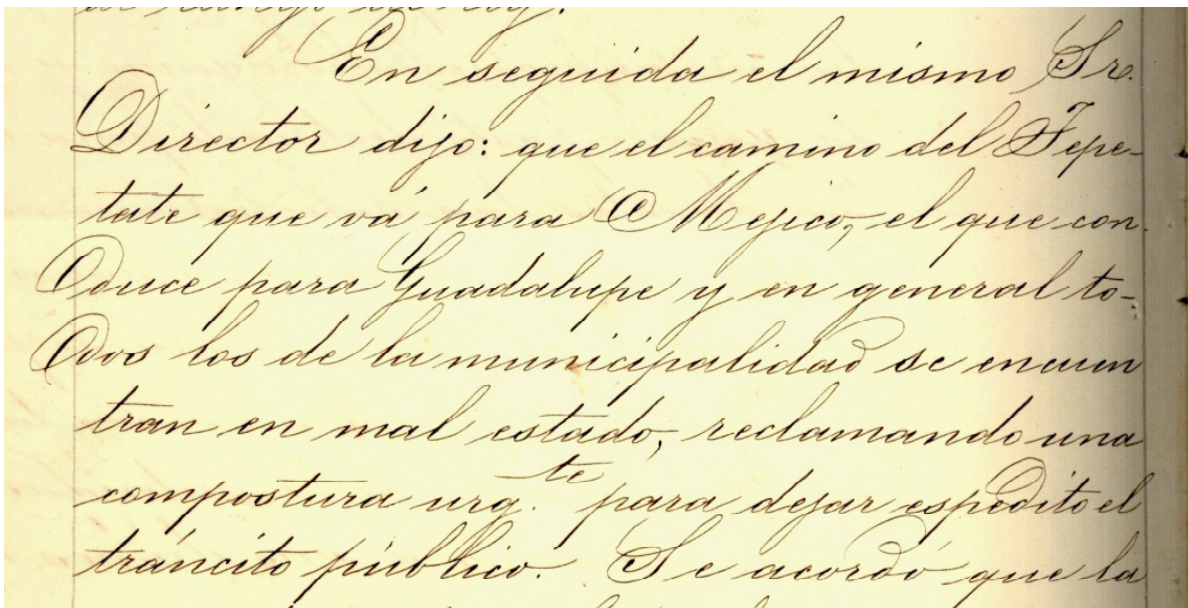 En seguida el mismo Sr.
Director dijo: que el camino del Tepe-
tate que vá para Mejico, el que con-
duce para Guadalupe y en general to-
dos los de la municipalidad se encuen
tran en mal estado, reclamando una
compostura urg.te para dejar espedito el
tráncito público. Se acordó que la